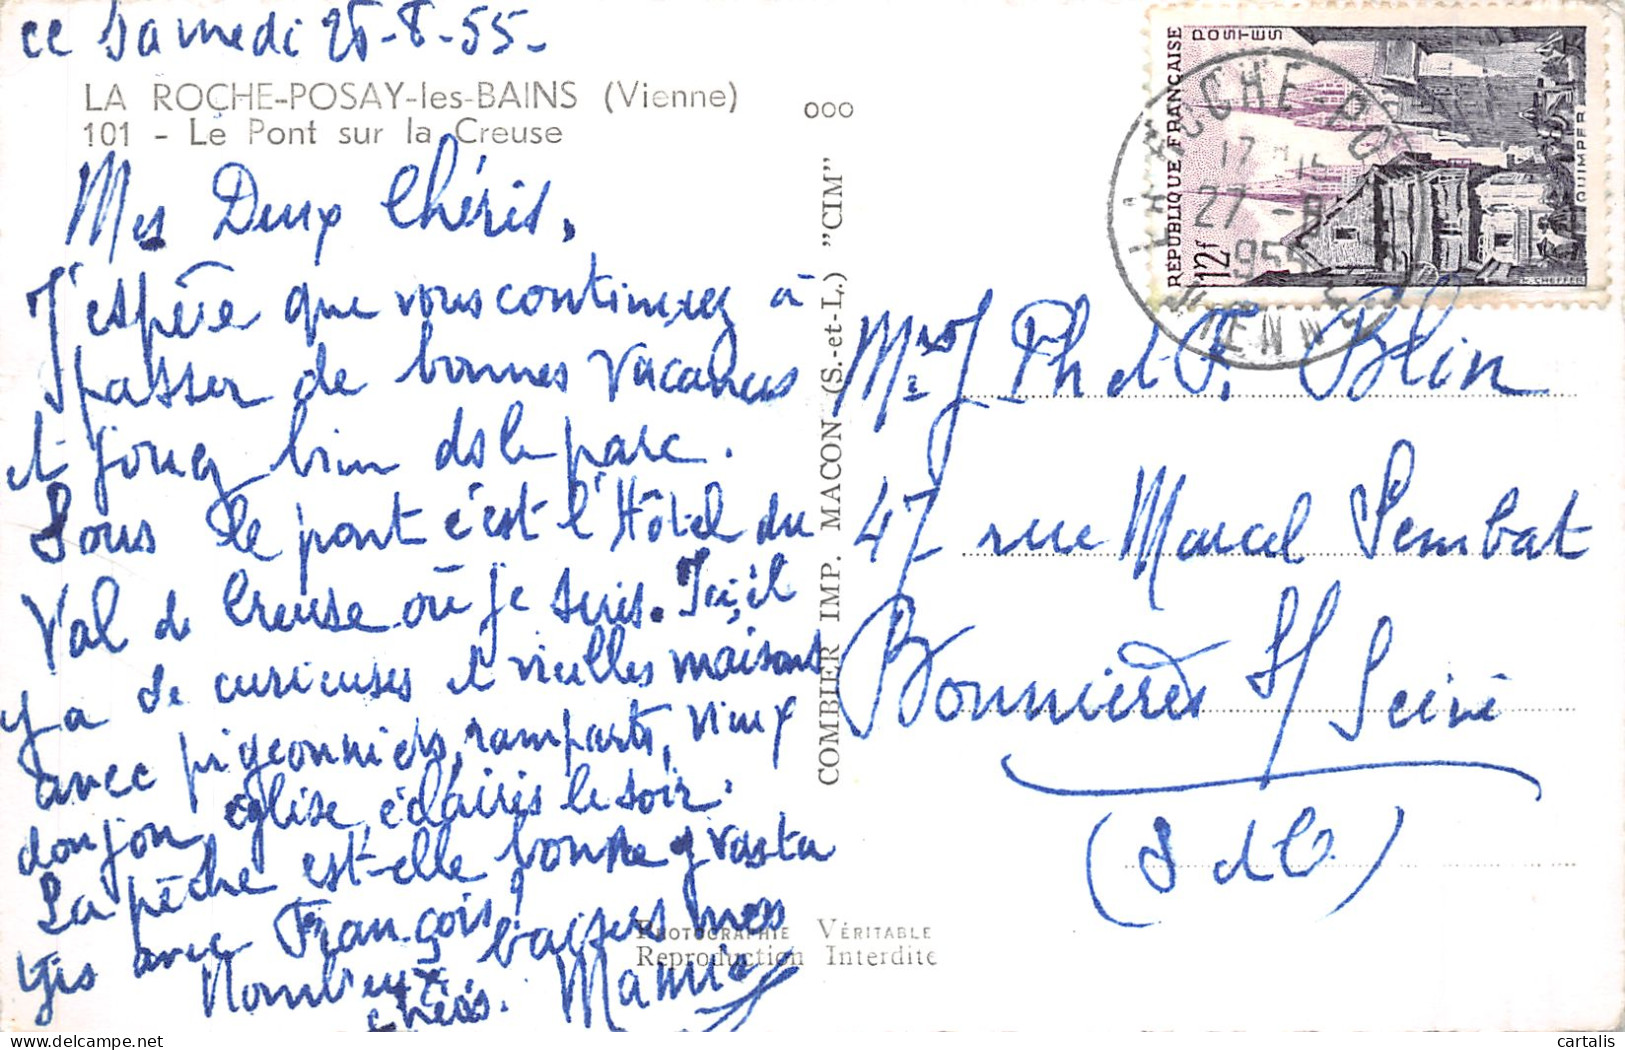 ce Samedi 2 -8-55-
LA ROCHE-POSAY-les-BAINS (Vienne)
101 - Le Pont sur la Creuse
Mes Deux Chéris,
J'espère que vous continuez à
passer de bonnes vacances
et jouez bien ds le parc.
Sous le pont c'est l'Hôtel du
Val de Creuse où je suis. Ici, il
y a de curieuses et vieilles maisons
avec pigeonniers, remparts, vieux
donjon, église éclairés le soir.
La pêche est-elle bonne
avec François?
Nombreux baisers mes
chéris. Mamie
PHOTOGRAPHIE VÉRITABLE
Reproduction Interdite
COMBIER IMP. MACON (S.-et-L.) "CIM"
000
RÉPUBLIQUE FRANÇAISE
POSTES
12f
QUIMPER
LA ROCHE-PO
27 -8
1955
VIENNE
Ph et F. Blin
47 rue Marcel Sembat
Bonnières s/ Seine
(S et O)
cartalis